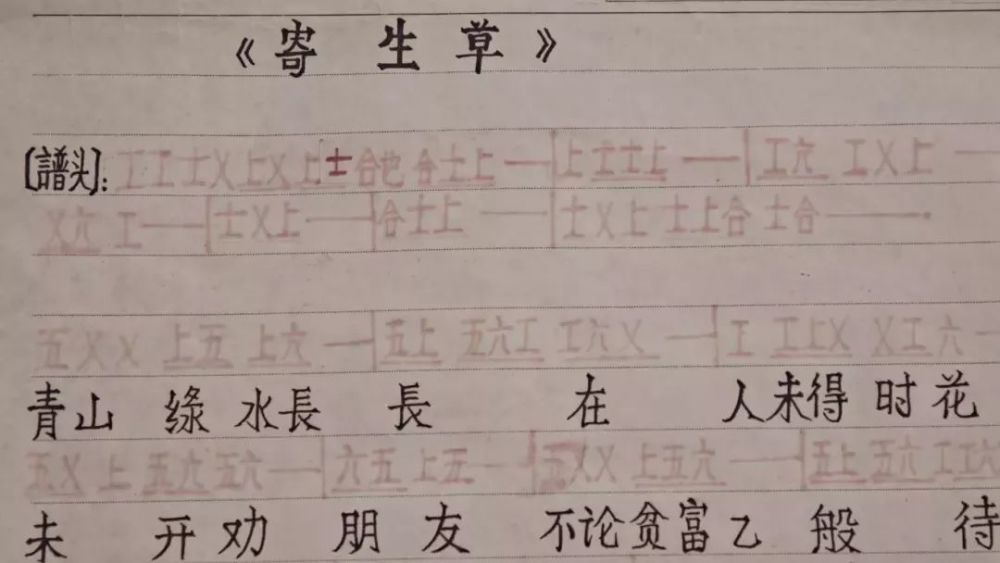 《寄生草》
[譜头]: 工工士乂上乂上士合 合士上一|上士士上一|工六 工乂上一
乂六 工一|士乂上一|合士上一|士乂上 士上合 士合一
五乂乂 上五 上六一|五上 五六工 工六乂一|工 工上乂 乂工六一
青山 绿水長 長 在 人未得时花
五乂上 五六五六一|六五上五一|五乂乂 上五六一|五上五六工工六
未 开劝 朋友 不论贫富乙般 待